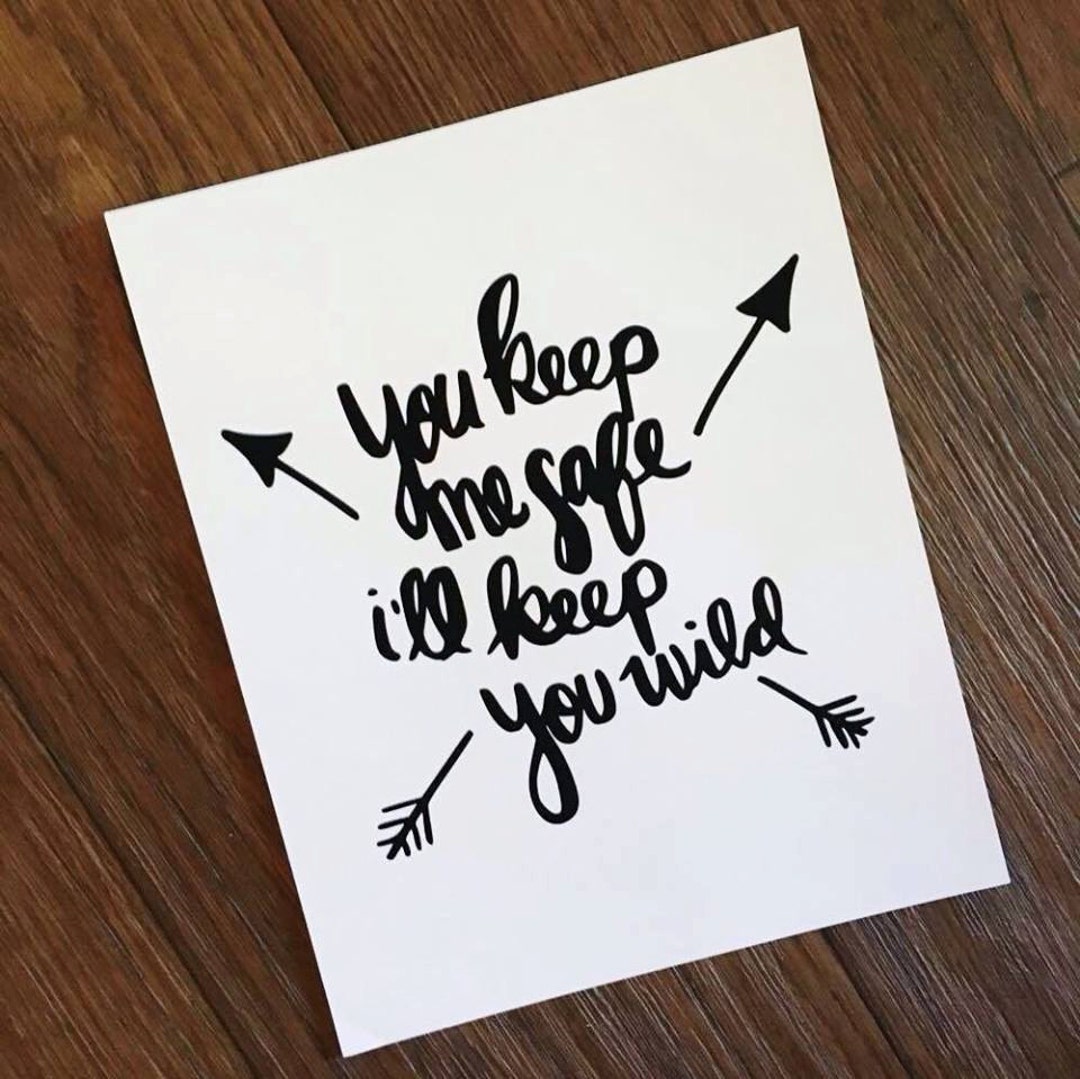 you keep
me safe
i'll keep
you wild